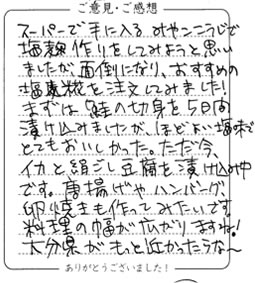 ご意見・ご感想
スーパーで手に入るみやここうじで
塩麹作りをしてみようと思い
ましたが、面倒になり、おすすめの
塩麹糀を注文してみました!
まずは鮭の切身を5日間
漬け込みましたが、ほどよい塩味で
とてもおいしかった。ただ今、
イカと絹ごし豆腐を漬け込み中
です。唐揚げやハンバーグ、
卵焼きも作ってみたいです。
料理の幅が広がりますね!
大分県がもっと近かったらな~
ありがとうございました!